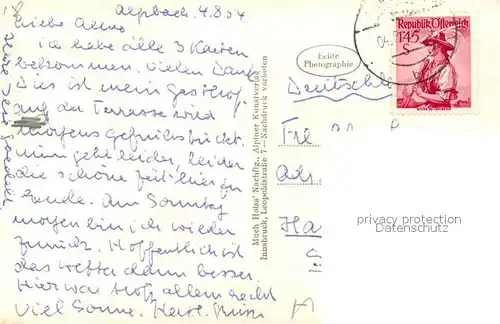 Alpbach. 4.8.54
Liebe Anne
ich habe alle 3 Karten
bekommen. Vielen Dank
Dies ist mein Gasthof
auf der Terrasse wird
morgens gefrühstückt
nun geht leider, leider
die schöne Zeit hier zu
Ende. Am Sonntag
morgen bin ich wieder
zurück. Hoffentlich ist
das Wetter dann besser.
Hier war trotz allem recht
viel Sonne. Herzl. Grüße
Much Heiss' Nachflg., Alpiner Kunstverlag
Innsbruck, Leopoldstraße 7 — Nachdruck verboten
Echte
Photographie
Republik Österreich
1·45
S
Deutschl
privacy protection
Datenschutz